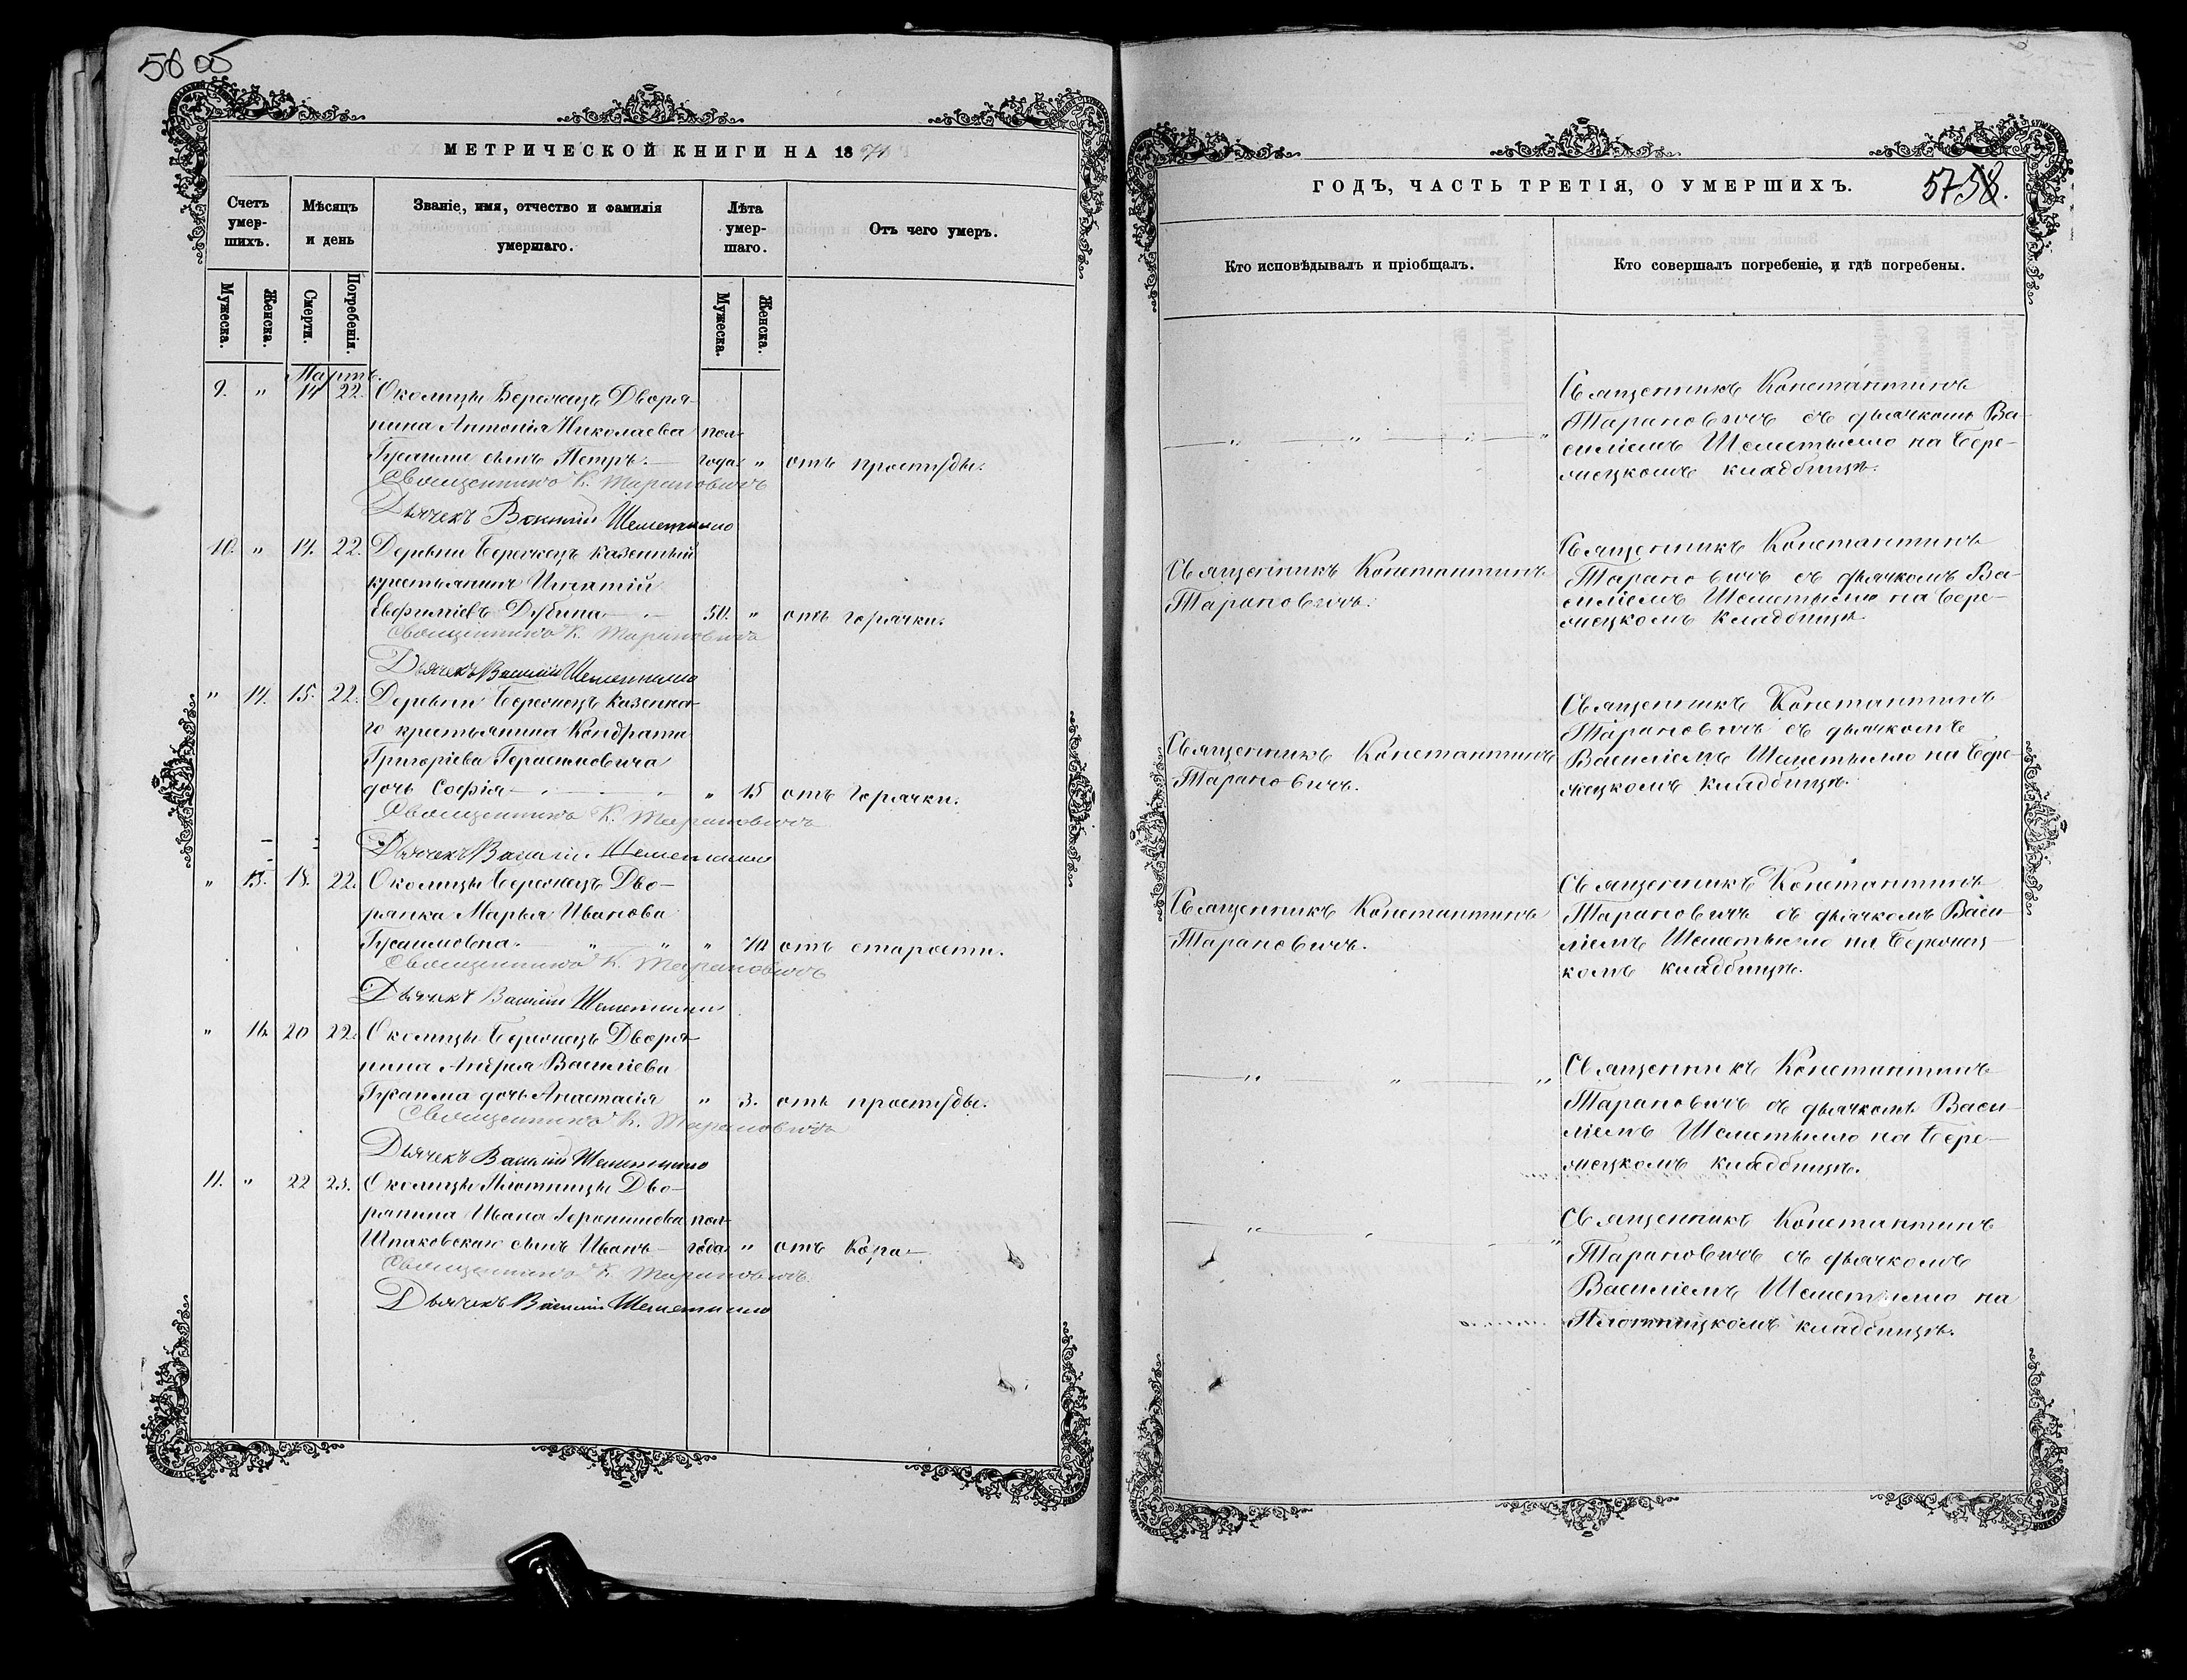 5805
МЕТРИЧЕСКОЙ КНИГИ НА 1871
Счетъ умер-шихъ.
Мѣсяцъ и день
Званіе, имя, отчество и фамилія умершаго.
Лѣта умер-шаго.
Отъ чего умеръ.
Мужеска.
Женска.
Смерти.
Погребенія.
Мужеска.
Женска.
Мартъ.
9. " 14 22. Околицы Бережецъ Дворя-
нина Антонія Николаева пол-
сынъ Петръ. года. " отъ простуды.
Священникъ К. Тарановичъ
Дьячекъ Василій Шеметилло
10. " 14. 22. Деревни Бережецъ казенный
крестьянинъ Игнатій
Евфиміевъ Дубина 50. " отъ горячки.
Священникъ К. Тарановичъ
Дьячекъ Василій Шеметилло
" 14. 15. 22. Деревни Бережецъ казенна-
го крестьянина Кондрата
Григоріева Герасимовича
дочь Софія " 15 отъ горячки.
Священникъ К. Тарановичъ
Дьячекъ Василій Шеметилло
" 15. 18. 22. Околицы Бережецъ Дво-
рянка Марья Иванова
" " " отъ старости.
Священникъ К. Тарановичъ
Дьячекъ Василій Шеметилло
" 16. 20 22. Околицы Бережецъ Дворя-
нина Андрея Василіева
дочь Анастасія " 3. отъ простуды.
Священникъ К. Тарановичъ
Дьячекъ Василій Шеметилло
11. " 22 23. Околицы Плотницы Дво-
рянина Ивана Іеронимова пол-
Шпаковскаго сынъ Иванъ года. " отъ Кора.
Священникъ К. Тарановичъ
Дьячекъ Василій Шеметилло
ГОДЪ, ЧАСТЬ ТРЕТІЯ, О УМЕРШИХЪ.
57 58.
Кто исповѣдывалъ и пріобщалъ.
Кто совершалъ погребеніе, и гдѣ погребены.
" " " "
Священникъ Константинъ
Тарановичъ съ дьячкомъ Ва-
силіемъ Шеметылло на Бере-
жецкомъ кладбищѣ.
Священникъ Константинъ
Тарановичъ.
Священникъ Константинъ
Тарановичъ съ дьячкомъ Ва-
силіемъ Шеметылло на Бере-
жецкомъ кладбищѣ
Священникъ Константинъ
Тарановичъ.
Священникъ Константинъ
Тарановичъ съ дьячкомъ
Василіемъ Шеметылло на Бере-
жецкомъ кладбищѣ.
Священникъ Константинъ
Тарановичъ.
Священникъ Константинъ
Тарановичъ съ дьячкомъ Васи-
ліемъ Шеметылло на Бережец-
комъ кладбищѣ.
" " "
Священникъ Константинъ
Тарановичъ съ дьячкомъ Васи-
ліемъ Шеметылло на Бере-
жецкомъ кладбищѣ.
" " "
Священникъ Константинъ
Тарановичъ съ дьячкомъ
Василіемъ Шеметылло на
Плотницкомъ кладбищѣ.